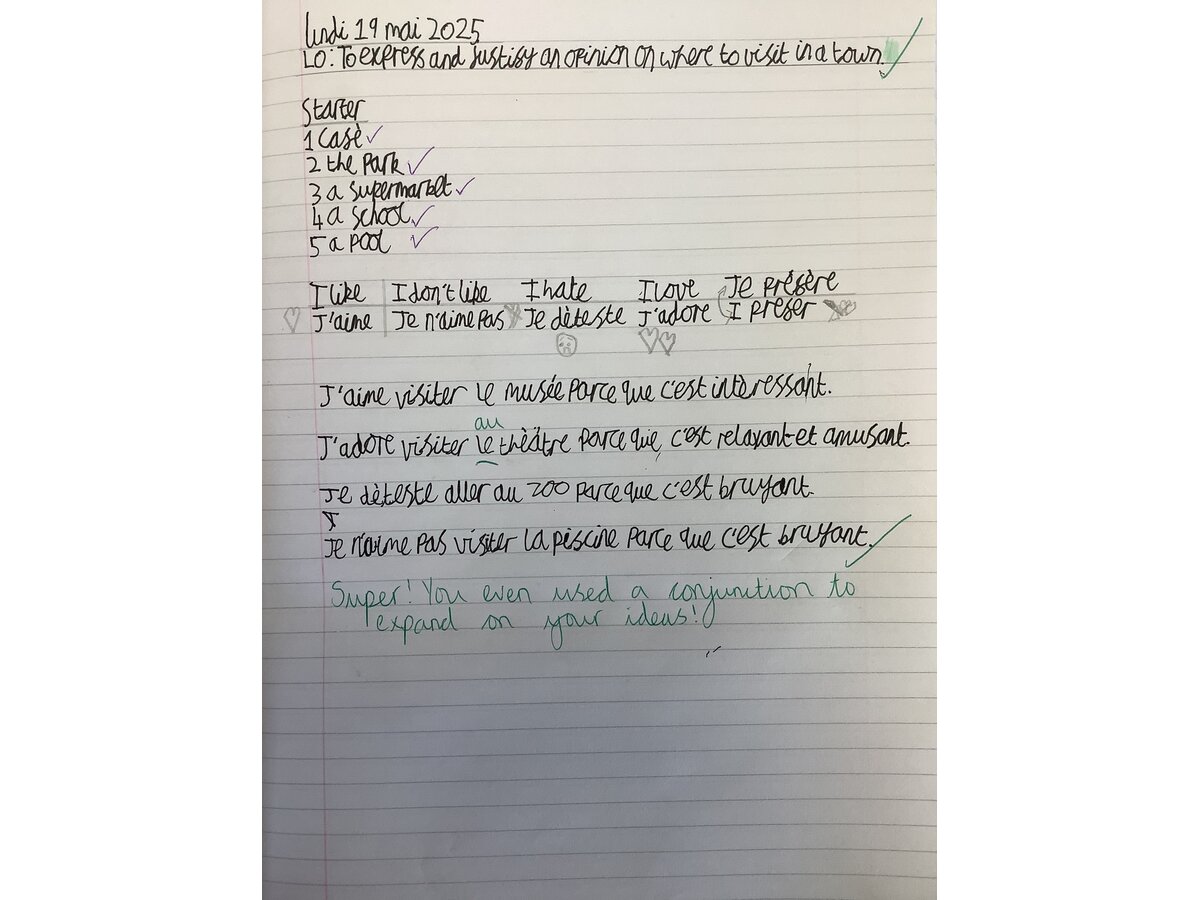 lundi 19 mai 2025
LO: To express and justify an opinion on where to visit in a town.
Starter
1 Cafè
2 the park
3 a supermarket
4 a school
5 a pool
I like I don't like I hate I love Je préfère
J'aime Je n'aime pas Je dèteste J'adore I prefer
J'aime visiter le musée parce que c'est intèressant.
au
J'adore visiter le thèâtre parce que, c'est relaxant et amusant.
Je dèteste aller au zoo parce que c'est bruyant.
Je n'aime pas visiter la piscine parce que c'est bruyant.
Super! You even used a conjunction to
expand on your ideas!